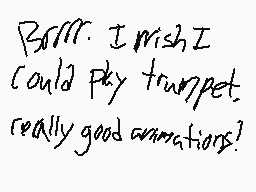 Brrrr. I wish I
could play trumpet.
really good animations!